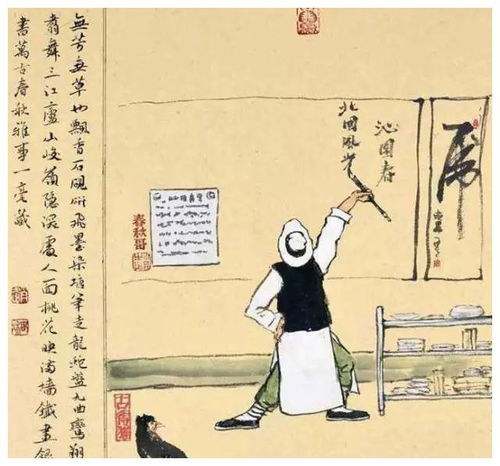 虎
沁園春
北國風
春秋哥
無芳無草也飄香石硯研飛墨染塘筆走龍蛇盤九曲鸞翔
翥舞三江廬山峻嶺隱深處人面桃花映滿墻鐵畫銀
書萬古春秋雅事一毫藏